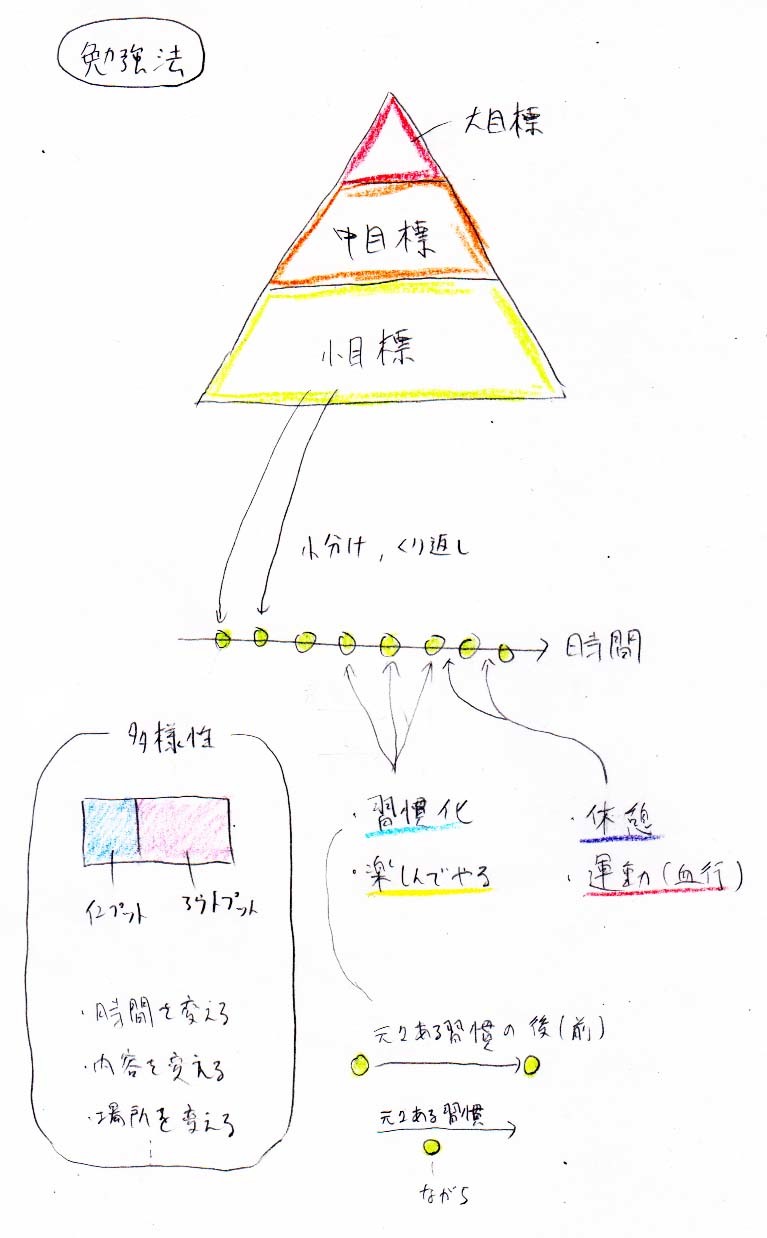 勉強法
大目標
中目標
小目標
小分け, くり返し
時間
多様性
インプット アウトプット
・時間を変える
・内容を変える
・場所を変える
・習慣化
・楽しんでやる
・休憩
・運動(血行)
元々ある習慣の後(前)
元々ある習慣
ながら